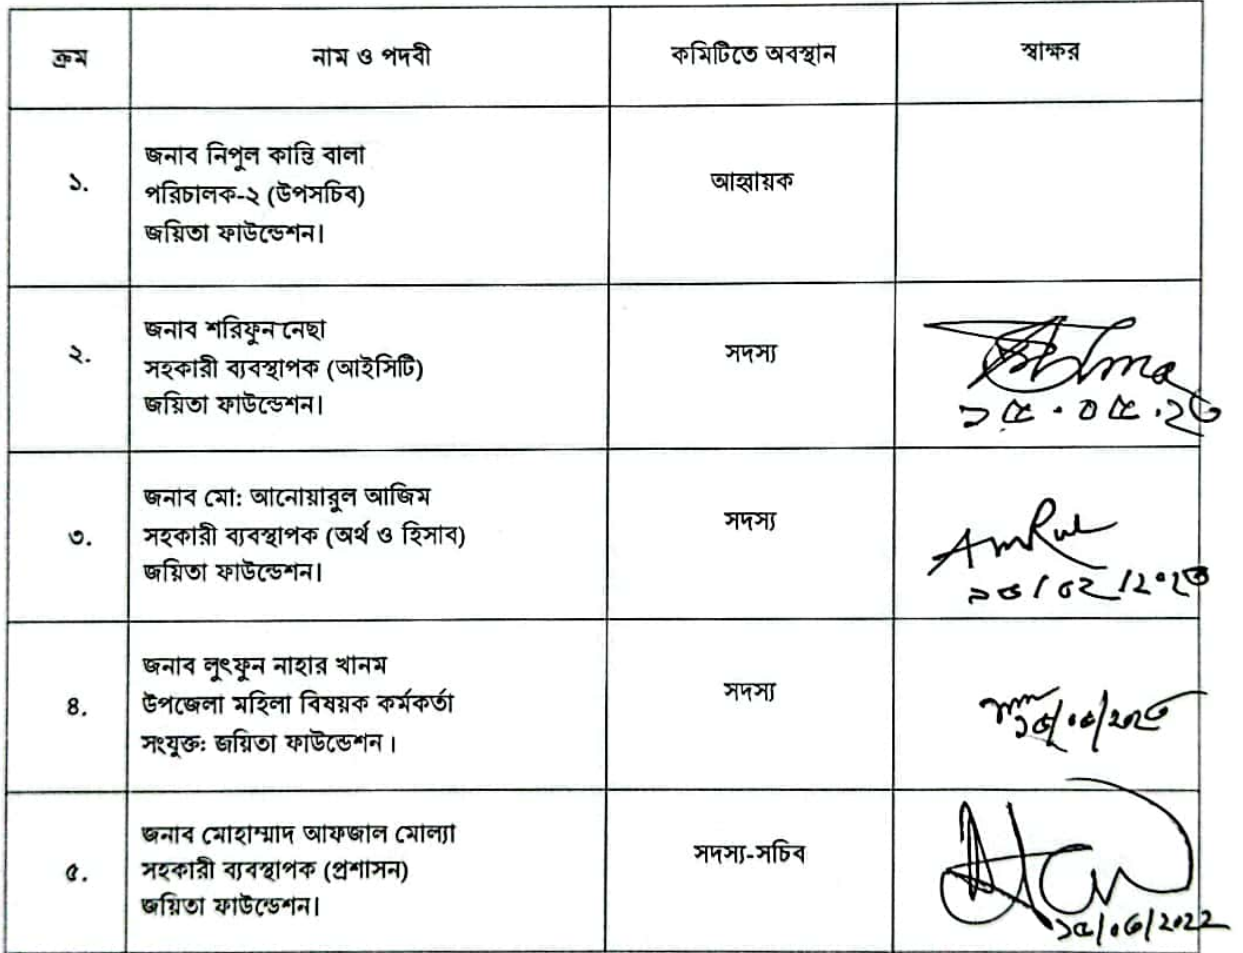 ক্রম নাম ও পদবী কমিটিতে অবস্থান স্বাক্ষর
১. জনাব নিপুল কান্তি বালা
পরিচালক-২ (উপসচিব)
জয়িতা ফাউন্ডেশন।
আহ্বায়ক
২. জনাব শরিফুন নেছা
সহকারী ব্যবস্থাপক (আইসিটি)
জয়িতা ফাউন্ডেশন।
সদস্য
১৫.০৫.২৩
৩. জনাব মো: আনোয়ারুল আজিম
সহকারী ব্যবস্থাপক (অর্থ ও হিসাব)
জয়িতা ফাউন্ডেশন।
সদস্য
৪. জনাব লুৎফুন নাহার খানম
উপজেলা মহিলা বিষয়ক কর্মকর্তা
সংযুক্ত: জয়িতা ফাউন্ডেশন।
সদস্য
৫. জনাব মোহাম্মাদ আফজাল মোল্যা
সহকারী ব্যবস্থাপক (প্রশাসন)
জয়িতা ফাউন্ডেশন।
সদস্য-সচিব